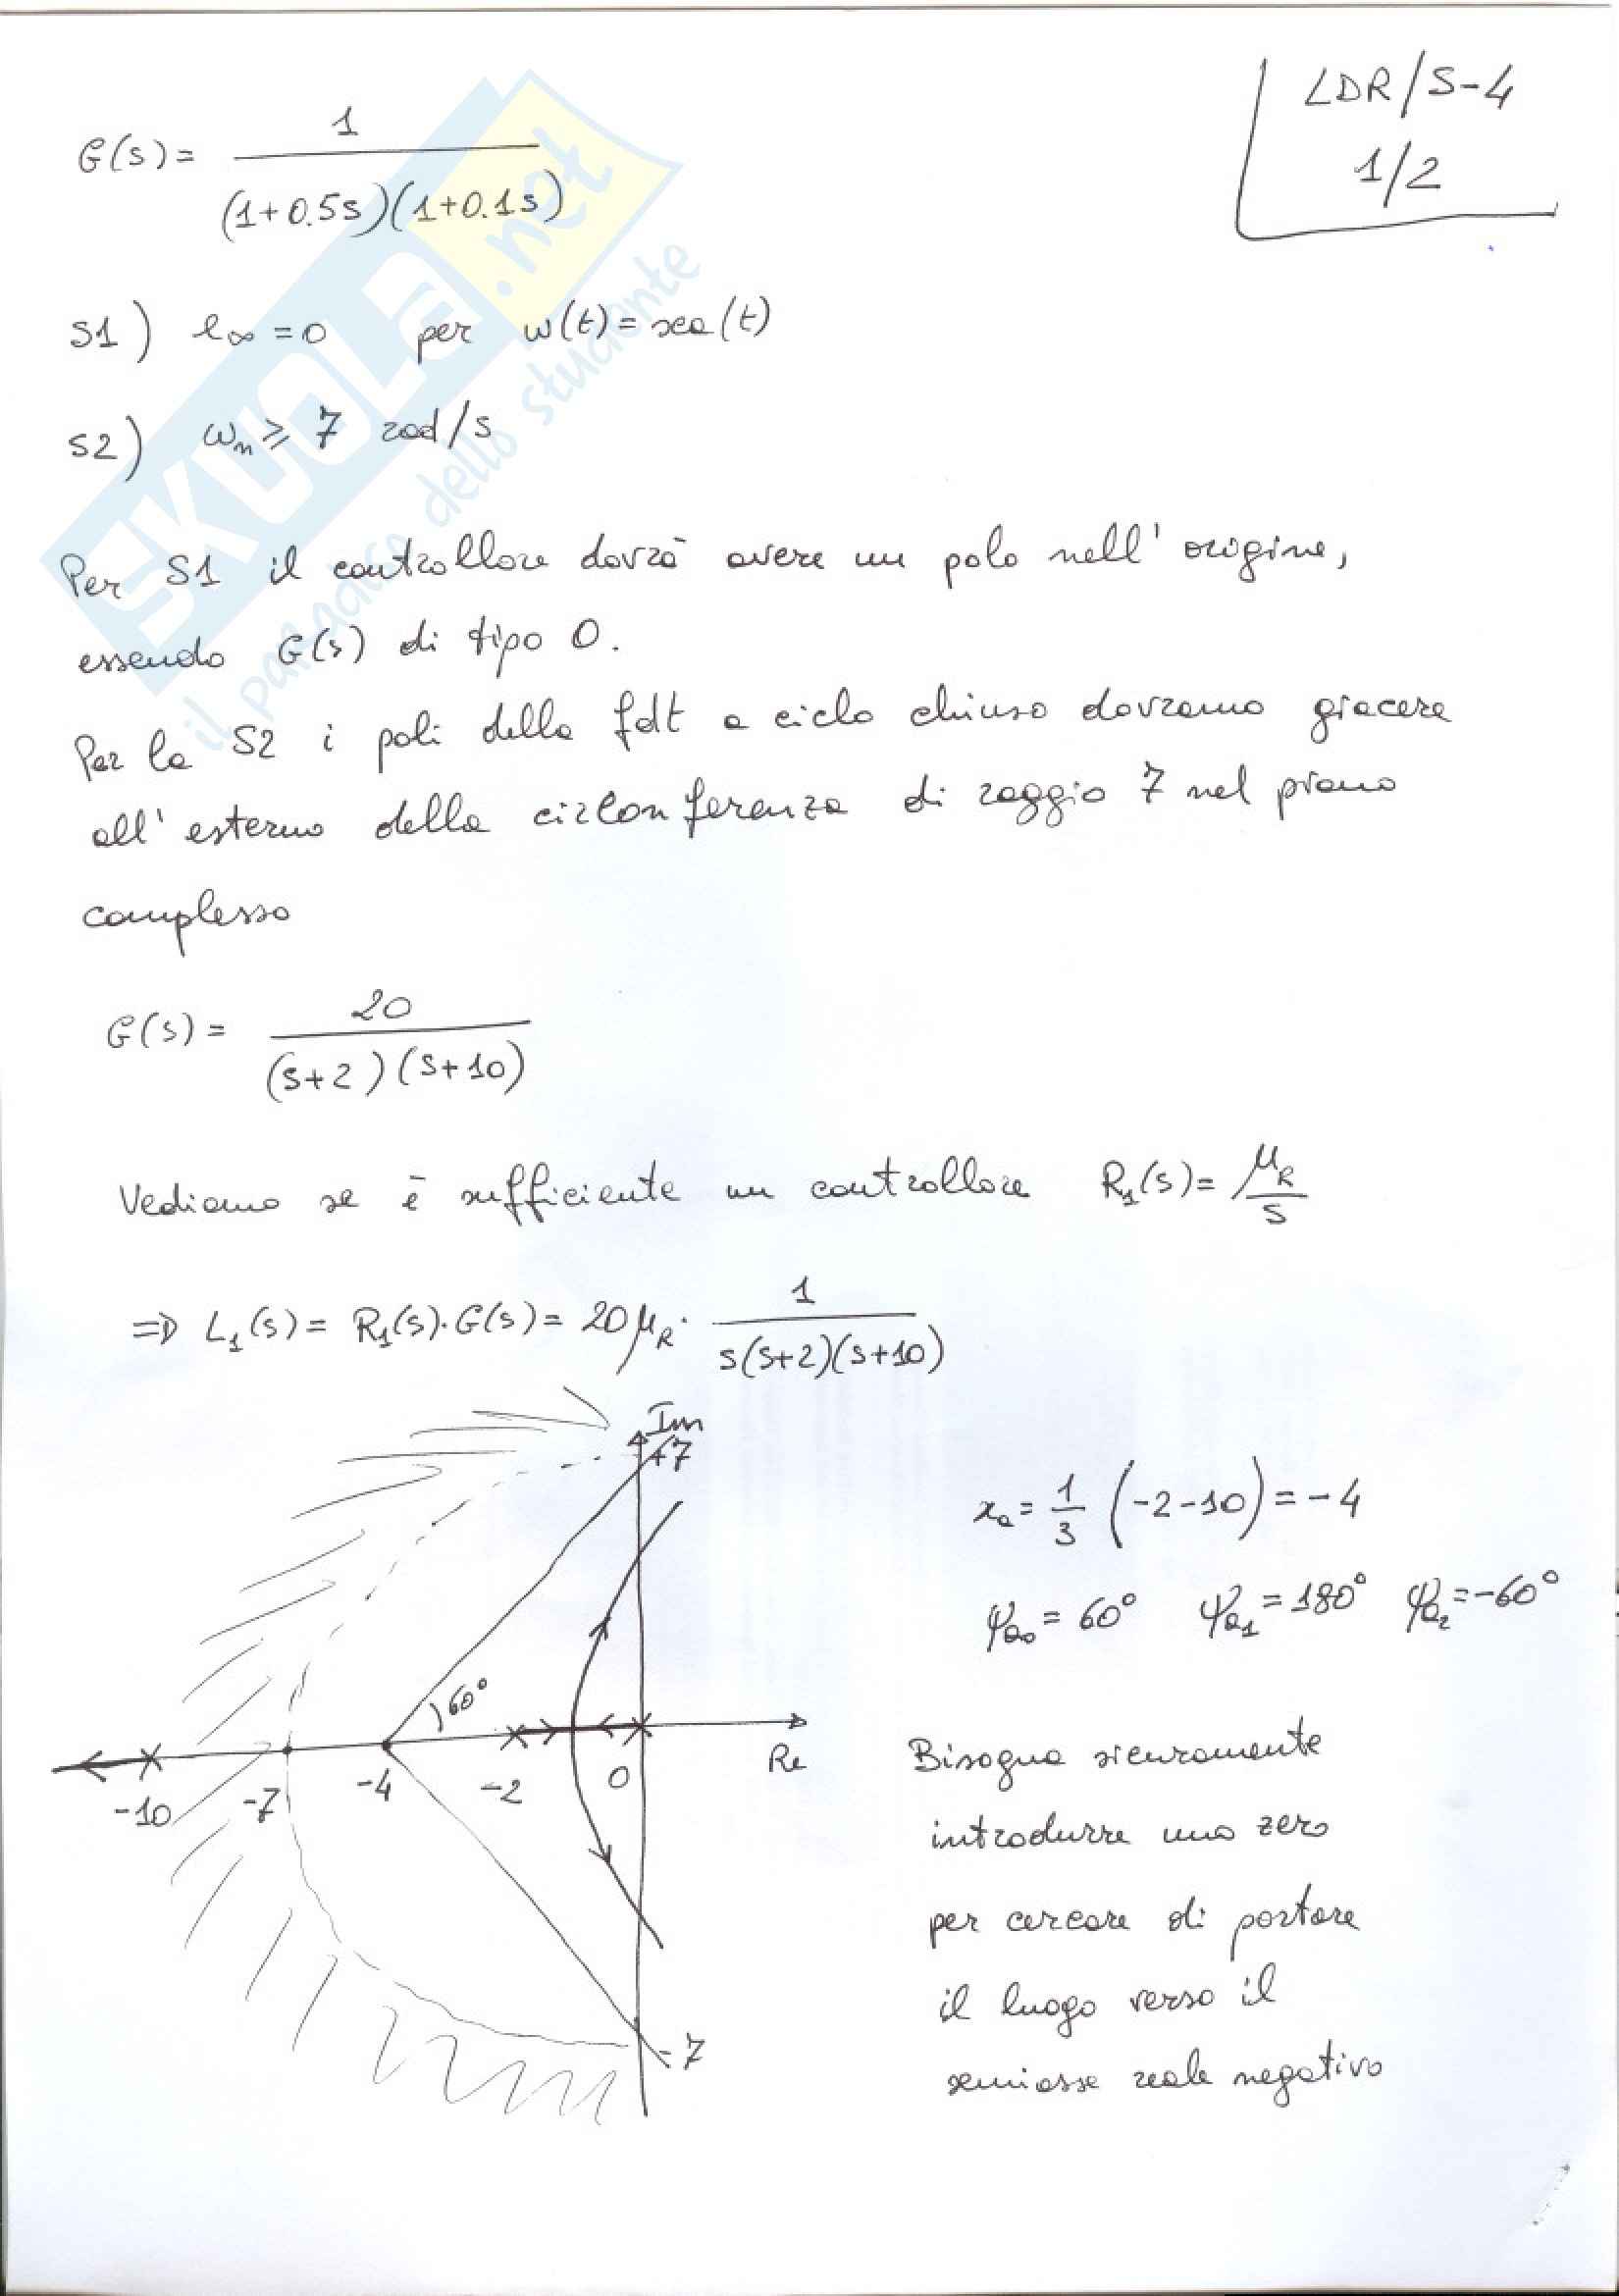 LDR/S-4
1/2
G(s) = 1 / (1+0.5s)(1+0.1s)
SKUOLA.net
il paradiso dello studente
S1) e∞ = 0 per w(t) = sca(t)
S2) ωn ≥ 7 rad/s
Per S1 il controllore dovrà avere un polo nell'origine,
essendo G(s) di tipo 0.
Per la S2 i poli della fdt a ciclo chiuso dovranno giacere
all'esterno della circonferenza di raggio 7 nel piano
complesso
G(s) = 20 / (s+2)(s+10)
Vediamo se è sufficiente un controllore R1(s) = μR / s
⇒ L1(s) = R1(s)·G(s) = 20 μR · 1 / s(s+2)(s+10)
Im
+7
60°
-10
-7
-4
-2
0
Re
-7
xa = 1/3 (-2-10) = -4
φa0 = 60° φa1 = 180° φa2 = -60°
Bisogna sicuramente
introdurre uno zero
per cercare di portare
il luogo verso il
semiasse reale negativo